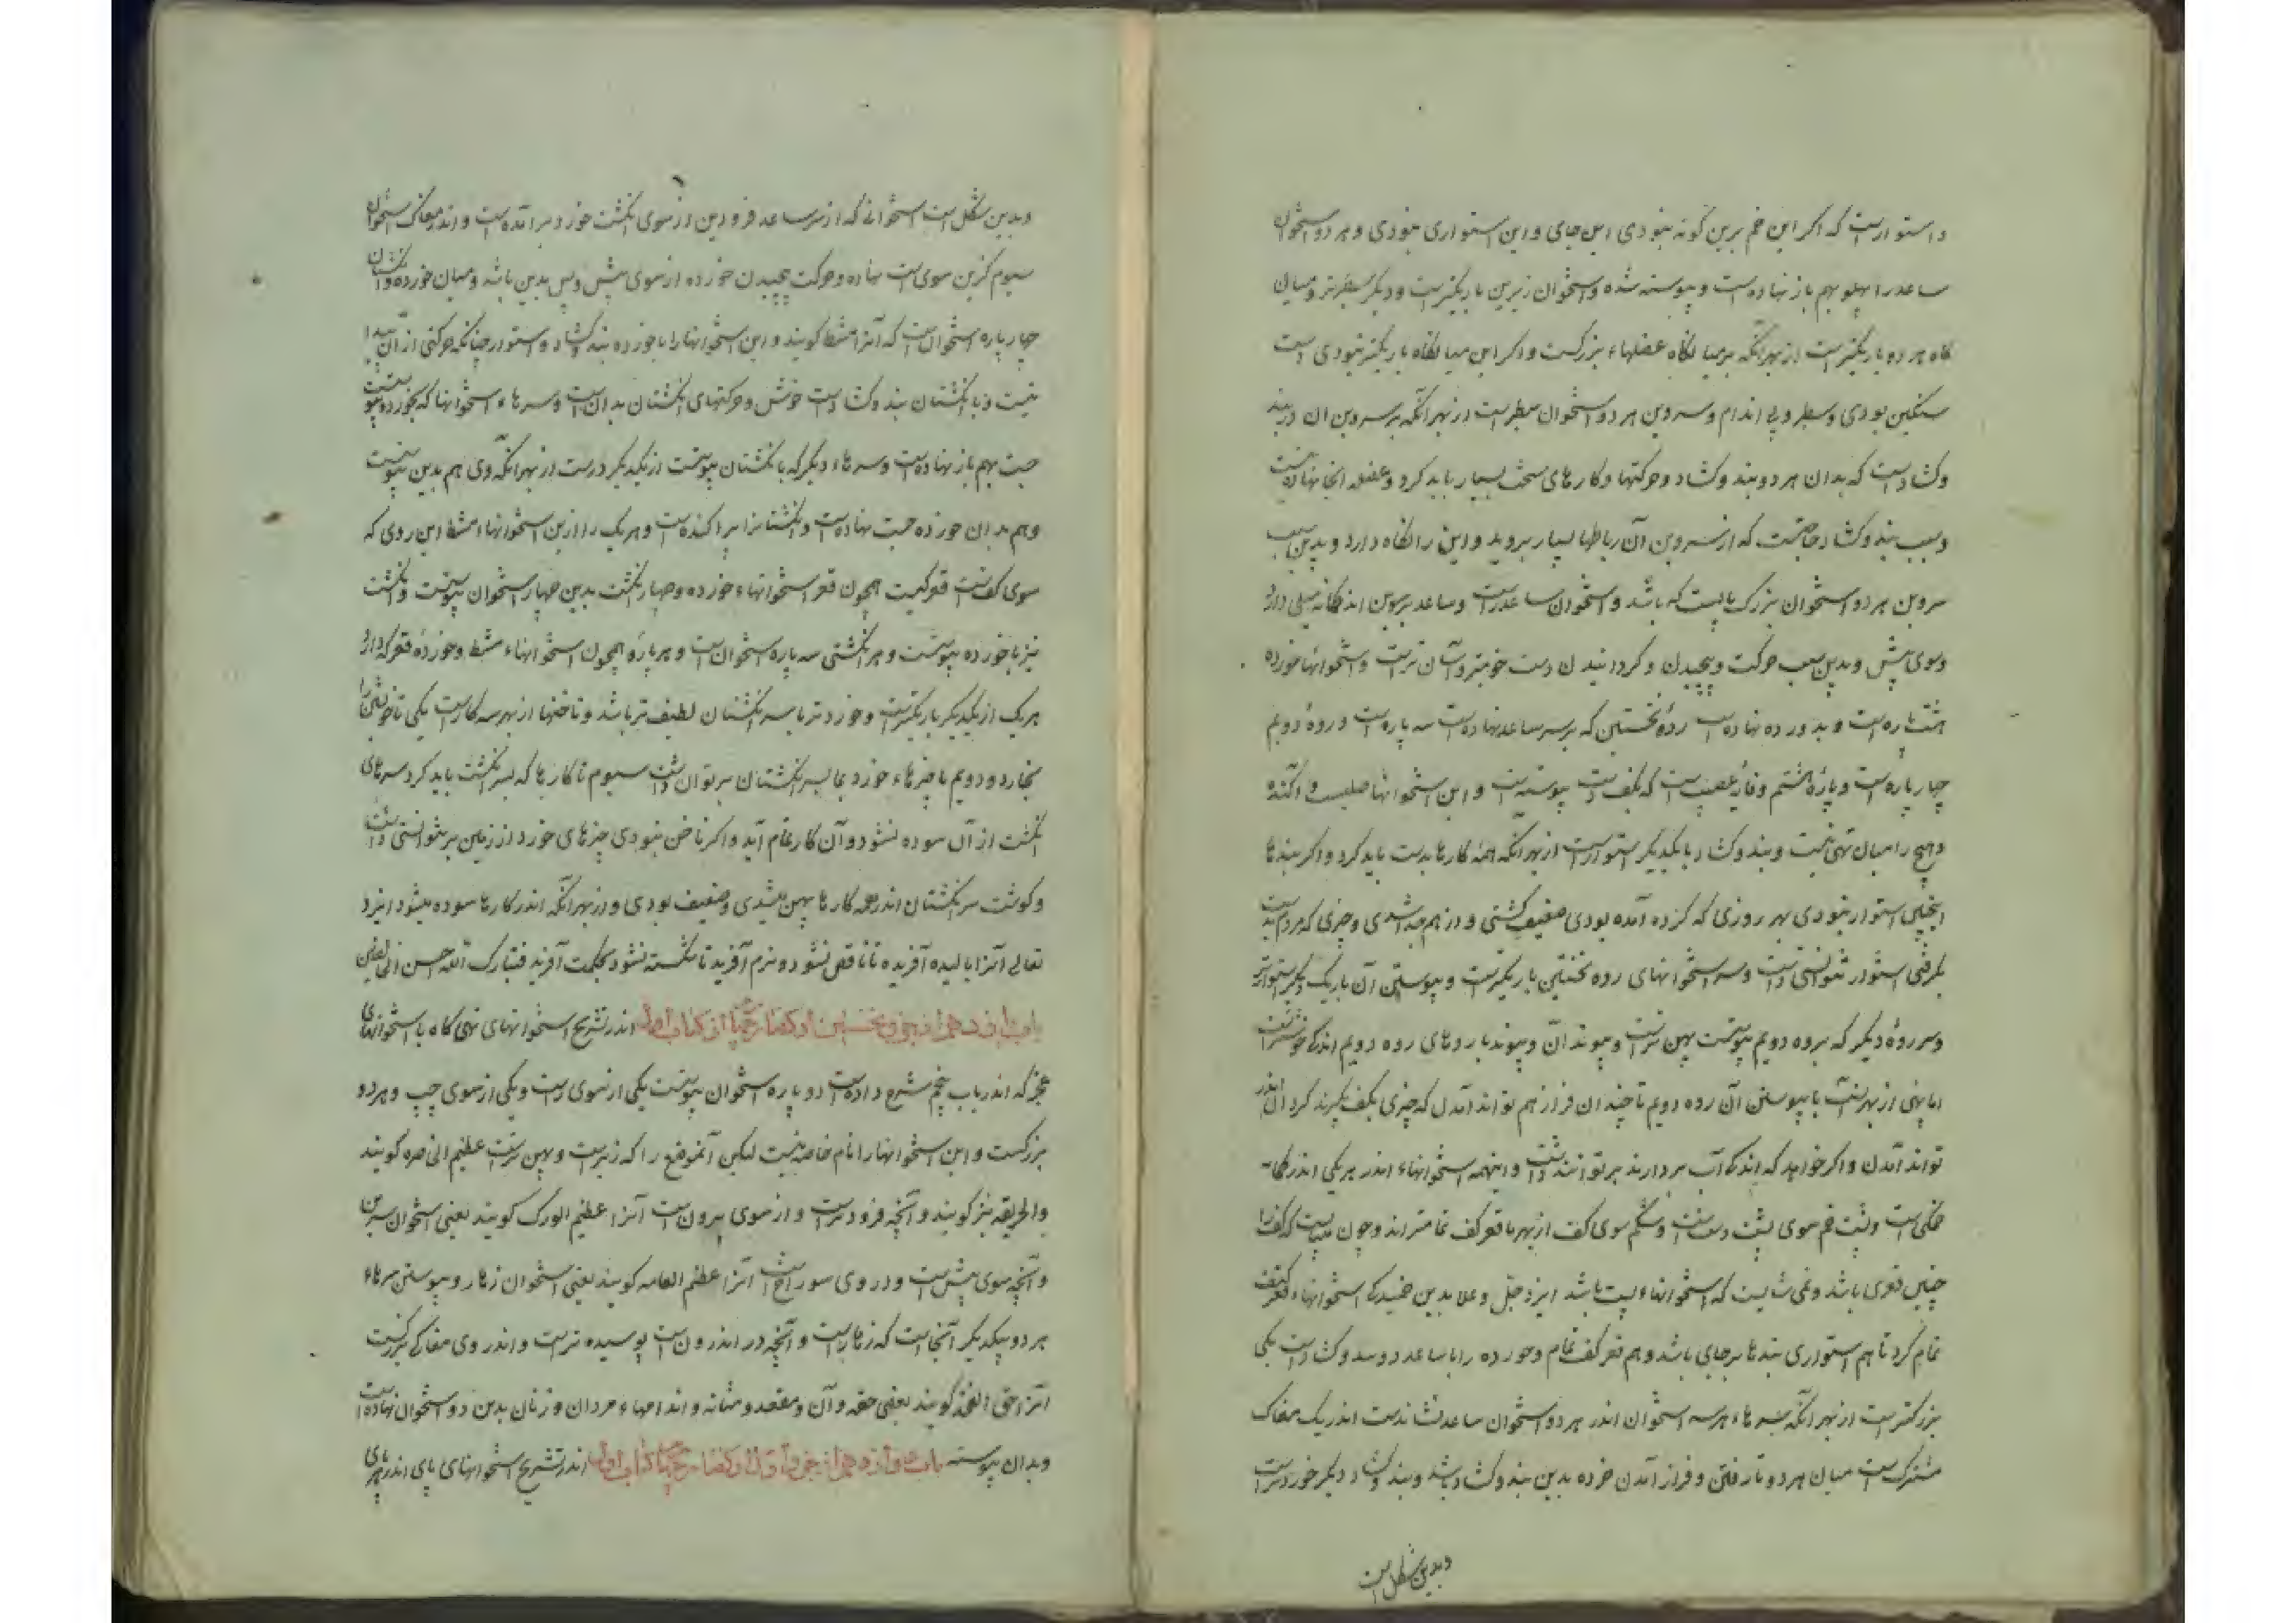 و استوارست که اکر این خم برین کونه نبودی این جای و این استواری نبودی و هر دو استخوان
ساعد را پهلو بهم باز نهاده است و پیوسته شده و استخوان زبرین باریکترست و دیکر سطبرتر و میان
کاه هر دو باریکترست از بهر آنکه بر میانکاه عضلهاء بزرکست و اکر این میانکاه باریکتر نبودی دست
سنکین بودی و سطبر و بی اندام و سر و بن هر دو استخوان سطبرست از بهر آنکه بر سر و بن ان دو بند
و کشادست که بدان هر دو بند و کشاد و حرکتها و کارهای سخت بسیار باید کرد و عضله انجا نهاده نیست
و سبب بند و کشاد حاجتست که از سر و بن آن رباطها بسیار بروید و این را نکاه دارد و بدین سبب
سر و بن هر دو استخوان بزرک بایست که باشد و استخوان ساعد راست و ساعد بیرون اندکمایه میلی دارد
و سوی پیش و بدین سبب حرکت و پیچیدن و کردانیدن دست خوبتر و آسان ترست و استخوانها خورده
هشت پاره است و بدو رده نهاده است ردۀ نخستین که بر سر ساعد نهاده است سه پاره است و ردۀ دویم
چهار پاره است و پارۀ هشتم وقایۀ عصبیست که بکف دست پیوسته است و این استخوانها صلبست و آکنده
و هیچ را میان تهی نیست و بند و کشاد با یکدیکر استوارست از بهر آنکه همه کارها بدست باید کرد و اکر بندها
اینچنین استوار نبودی بهر روزی که کزده آمده بودی ضعیف کشتی و از هم جدا شدی و چیزی که مردم بدست
بکرفتی استوار نتوانستی داشت و سر استخوانهای رده نخستین باریکترست و پیوستن آن باریک دیکر استوارتر
و سر ردۀ دیکر که برده دویم پیوستست پهن ترست و پیوند آن و پیوند با روهای رده دویم اندکی خوشترست
اما پهنی از بهر آنست تا بپیوستن آن رده دویم تا چندان فراز هم تواند آمدن که چیزی بکف بکیرند کرد آن اندر
تواند آمدن و اکر خواهد که اندکی آب بردارند بر توانند داشت و اینهمه استخوانهاء اندر هر یکی اندر کمایه
خمکی است و پشت خم سوی پشت دست است و شکم سوی کف از بهر تا قعر کف تمامتر اند و چون میبایست که کف را
چنین قعری باشد و نمی شایست که استخوانهاء پست باشد ایزد جل و علا بدین خمیدکی استخوانهاء قعر کتف
تمام کرد تا هم استواری بندها بر جای باشد و هم قعر کف تمام و خورده را با ساعد دو بند و کشادست یکی
بزرکترست از بهر آنکه سرهاء هر سه استخوان اندر هر دو استخوان ساعد نشاندست اندر یک مغاک
مشترکست میان هر دو تا رفتن و فراز آمدن خرده بدین بند و کشاد باشد و بند و کشاد دیکر خوردترست
و بدین شکل است
و بدین شکل است استخوانی که از سر ساعد فرودین از سوی انکشت خورد برآمده است و اندر مغاک استخوان
سیوم کزین سوی است نهاده و حرکت پیچیدن خورده از سوی پیش و پس بدین باشد و میان خورده و انکشتان
چهار پاره استخوان است که آنرا مشط کویند و این استخوانها را با خورده بند و کشاد استوار چنانکه حرکتی از آن پیدا
نیست و با انکشتان بند و کشادست خوش و حرکتهای انکشتان بدان است و سرهاء استخوانها که بخورده پیوستست
جست بهم باز نهادست و سرهاء دیکر که با نکشتان پیوستست از یکدیکر دورست از بهر آنکه وی هم بدین پیوستست
و هم بدان خورده جست نهادست و انکشتانرا پراکنده است و هر یک را ازین استخوانهاء مشط این روی که
سوی کف است قعرکیست همچون قعر استخوانهاء خورده و چهار انکشت بدین چهار استخوان پیوستست و انکشت
نیز با خورده پیوستست و هر انکشتی سه پاره استخوان است و هر پارۀ همچون استخوانهاء مشط و خورده قعرکی دارد
هر یک از یکدیکر باریکترست و خوردتر تا سر انکشتان لطیف تر باشد و ناخنها از بهر سه کارست یکی تا خویشتن را
بخارد و دویم تا چیزهاء خورد بدان سر انکشتان بر توان داشت سیوم تا کارها که بسر انکشت باید کرد سرهای
انکشت از آن سوده نشود و آن کار تمام آید و اکر ناخن نبودی چیزهای خورد از زمین بر نتوانستی داشت
و کوشت سر انکشتان اندر همه کارها پهن میشدی و ضعیف بودی و از بهر آنکه اندر کارها سوده میشود ایزد
تعالی آنرا بالیده آفریده تا ناقص نشود و نرم آفرید تا شکسته نشود بحکمت آفرید فتبارک الله احسن الخالقین
باب یازدهم از جزو نخستین از کفتار چهارم از کتاب اول اندر تشریح استخوانهای تهی کاه با استخوانهای
عجز که اندر باب پنجم شرح دادست دو پاره استخوان پیوستست یکی از سوی راست و یکی از سوی چپ و هر دو
بزرکست و این استخوانها را نام خاصه نیست لیکن آنموضع را که زبرست و پهن ترست عظم الخاصره کویند
و الحرقفه نیز کویند و آنچه فرودترست و از سوی بیرون است آنرا عظم الورک کویند یعنی استخوان سرین
و آنچه سوی پیش است و در وی سوراخست آنرا عظم العانه کویند یعنی استخوان زهار و پیوستن سرهاء
هر دو بیکدیکر آنجاست که زهارست و آنچه در اندرون است پوسیده ترست و اندر وی مغاکی بزرکست
آنرا حق الفخذ کویند یعنی حقه ران و مقعد و مثانه و اندامهاء مردان و زنان بدین دو استخوان نهاده است
و بدان پیوسته باب دوازدهم از جزو اول از کفتار چهارم از کتاب اول اندر تشریح استخوانهای پای اندر هر پای